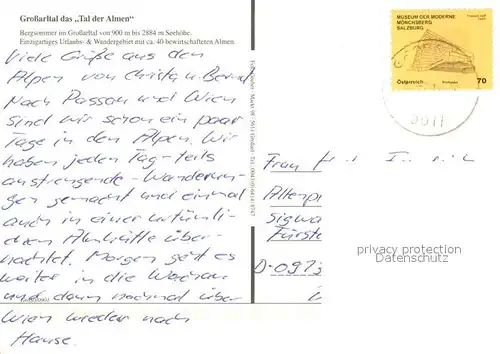 Großarltal das „Tal der Almen"
Bergsommer im Großarltal von 900 m bis 2884 m Seehöhe.
Einzigartiges Urlaubs- & Wandergebiet mit ca. 40 bewirtschafteten Almen.
Viele Grüße aus den
Alpen von Christa u. Bernd
Nach Passau und Wien
sind wir schon ein paar
Tage in den Alpen. Wir
haben jeden Tag teils
anstrengende Wanderun-
gen gemacht und einmal
auch in einer urtümli-
chen Almhütte über-
nachtet. Morgen geht es
weiter in die Wachau
und dann nochmal über
Wien wieder nach
Hause.
MUSEUM DER MODERNE
MÖNCHSBERG
SALZBURG
Österreich
70
Frau
Altenp
Sigwa
Fürste
D-0973
privacy protection
Datenschutz